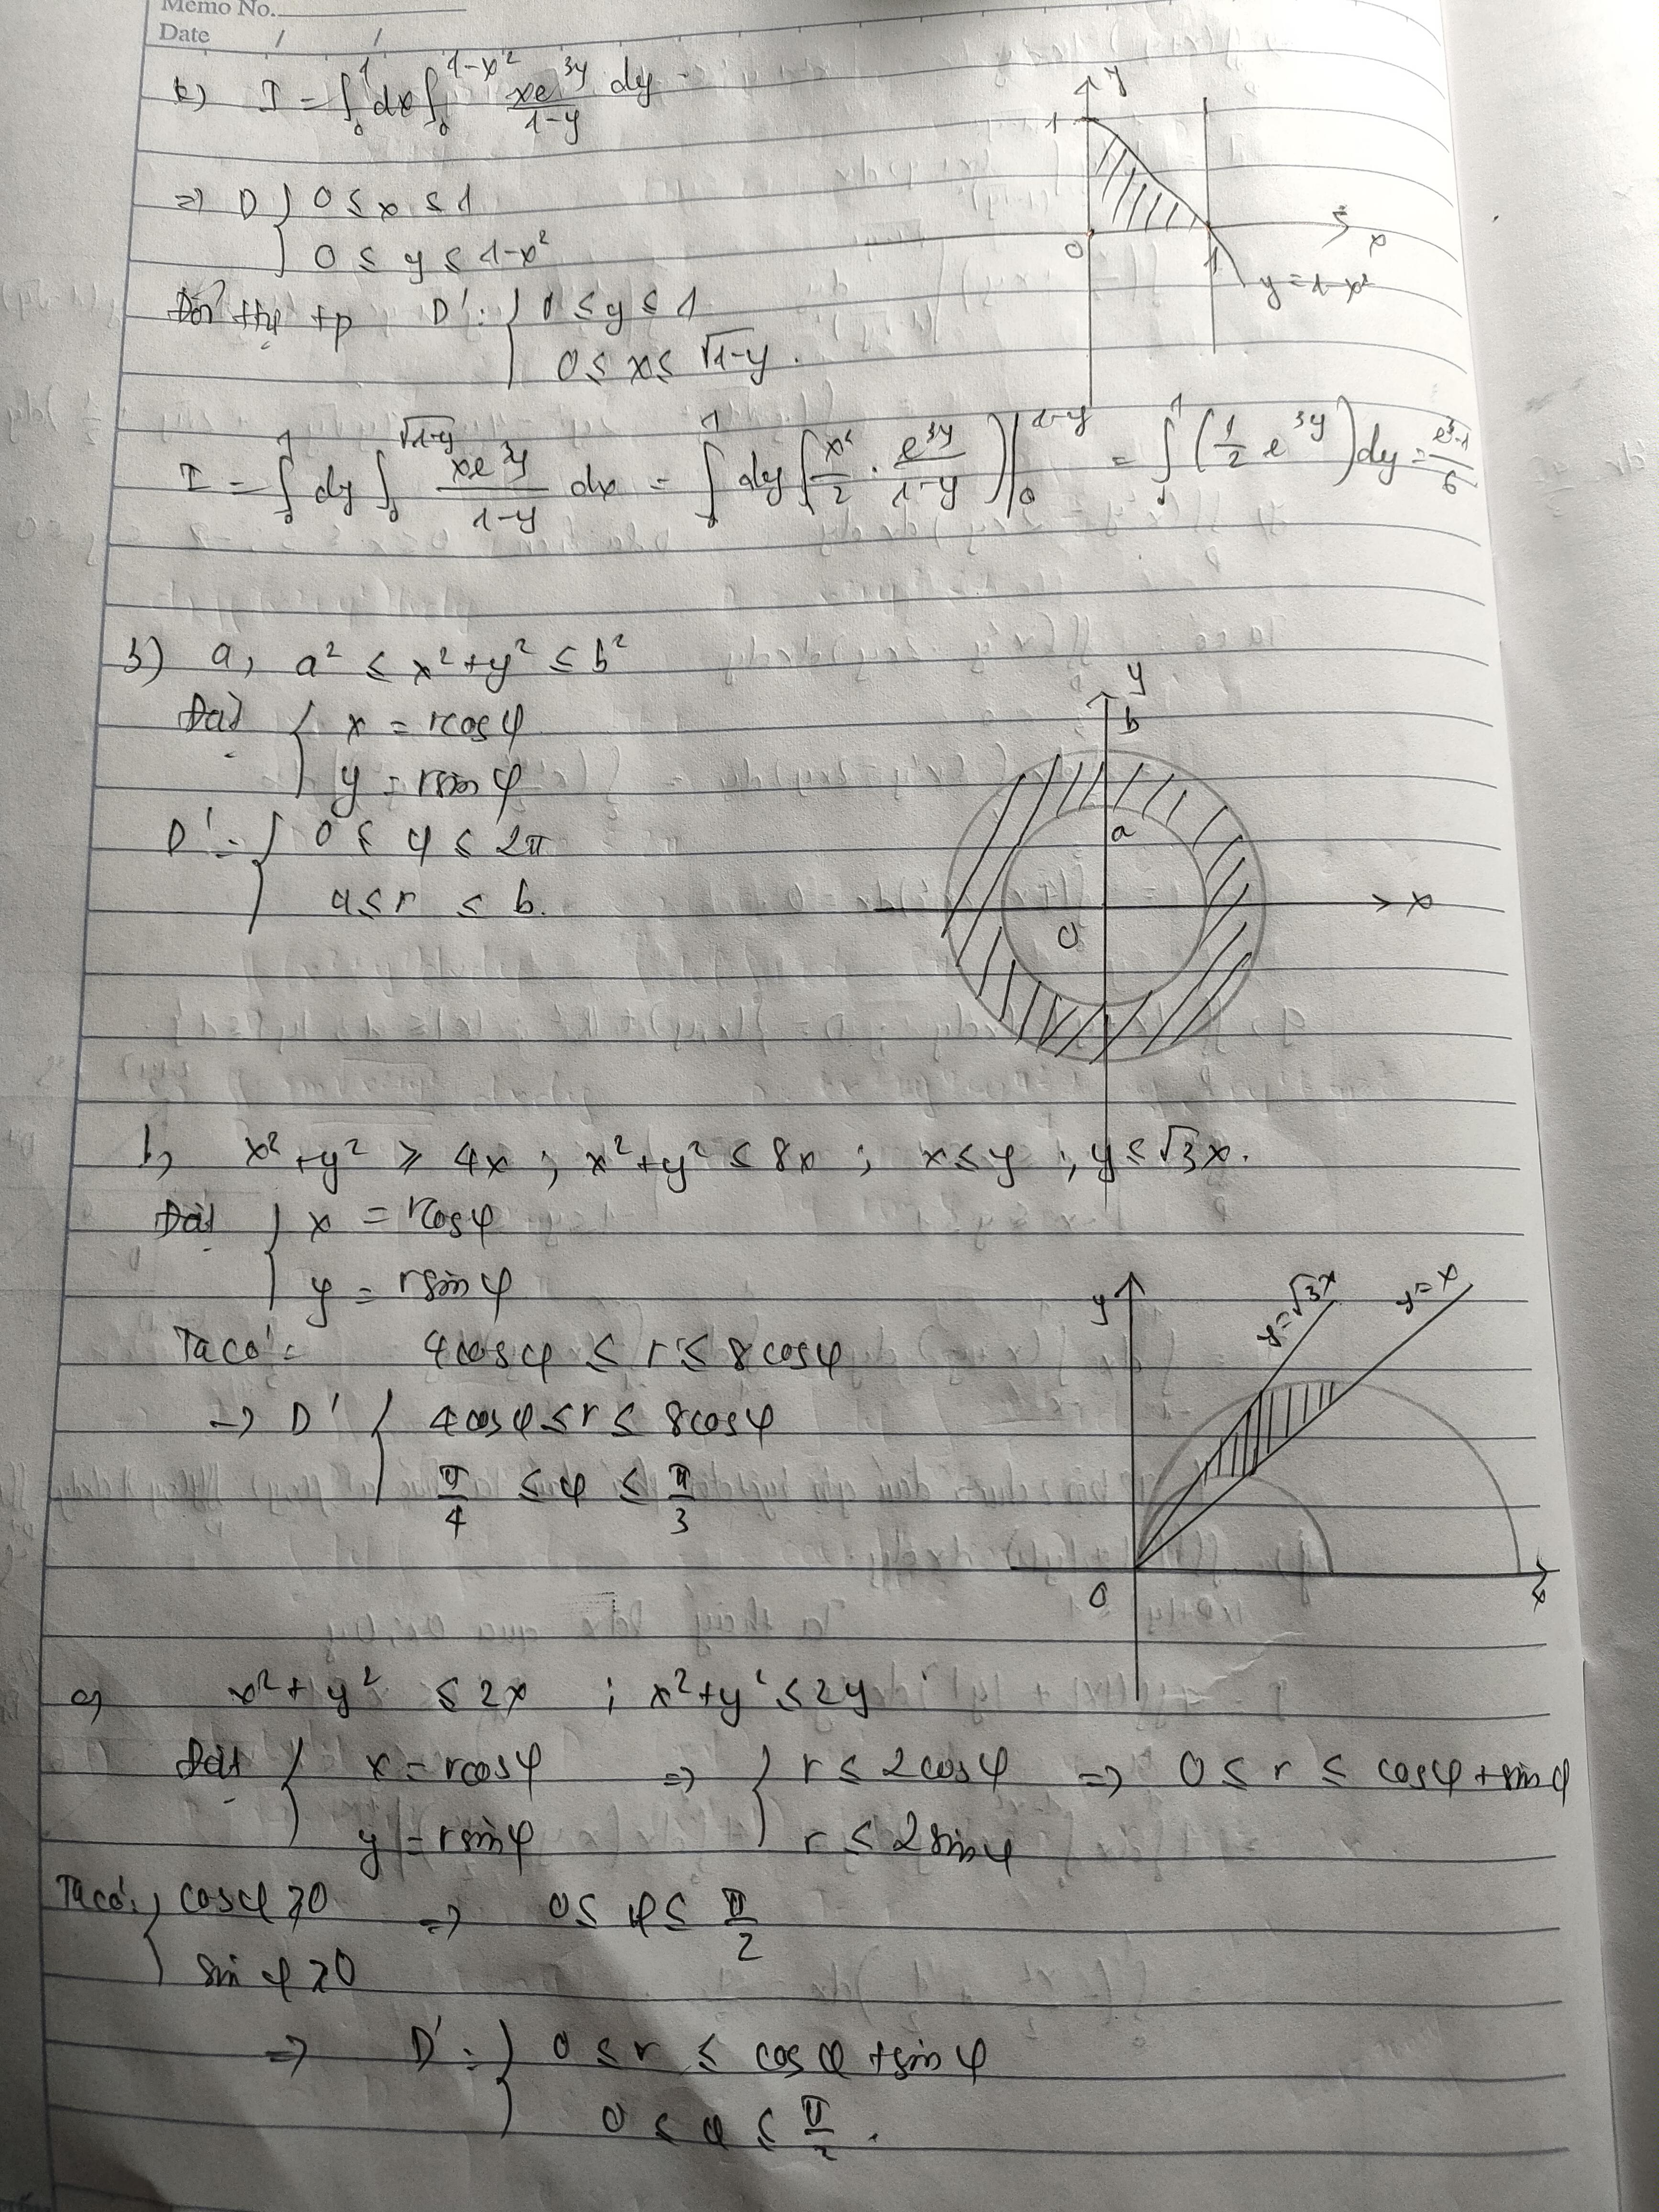 Memo No.
Date / /
k) I = ∫₀¹ dx ∫₀^(1-x²) xe^(3y)/(1-y) dy
⇒ D { 0 ≤ x ≤ 1
0 ≤ y ≤ 1-x²
Đổi thứ tự D': { 0 ≤ y ≤ 1
0 ≤ x ≤ √(1-y).
y
1
0
1
x
y = 1-x²
I = ∫₀¹ dy ∫₀^√(1-y) xe^(3y)/(1-y) dx = ∫₀¹ dy (x²/2 · e^(3y)/(1-y)) |₀^(1-y) = ∫₀¹ (1/2 e^(3y)) dy = (e³-1)/6
3) a, a² ≤ x²+y² ≤ b²
Đặt { x = rcosφ
y = rsinφ
D': { 0 ≤ φ ≤ 2π
a ≤ r ≤ b.
y
b
a
O
x
b, x²+y² ≥ 4x ; x²+y² ≤ 8x ; x ≤ y ; y ≤ √3x.
Đặt { x = rcosφ
y = rsinφ
Ta có: 4cosφ ≤ r ≤ 8cosφ
→ D' { 4cosφ ≤ r ≤ 8cosφ
π/4 ≤ φ ≤ π/3
y
y=√3x
y=x
O
x
c, x²+y² ≤ 2x ; x²+y² ≤ 2y
Đặt { x = rcosφ ⇒ { r ≤ 2cosφ ⇒ 0 ≤ r ≤ cosφ+sinφ
y = rsinφ r ≤ 2sinφ
Ta có: { cosφ ≥ 0 ⇒ 0 ≤ φ ≤ π/2
sinφ ≥ 0
⇒ D': { 0 ≤ r ≤ cosφ+sinφ
0 ≤ φ ≤ π/2.